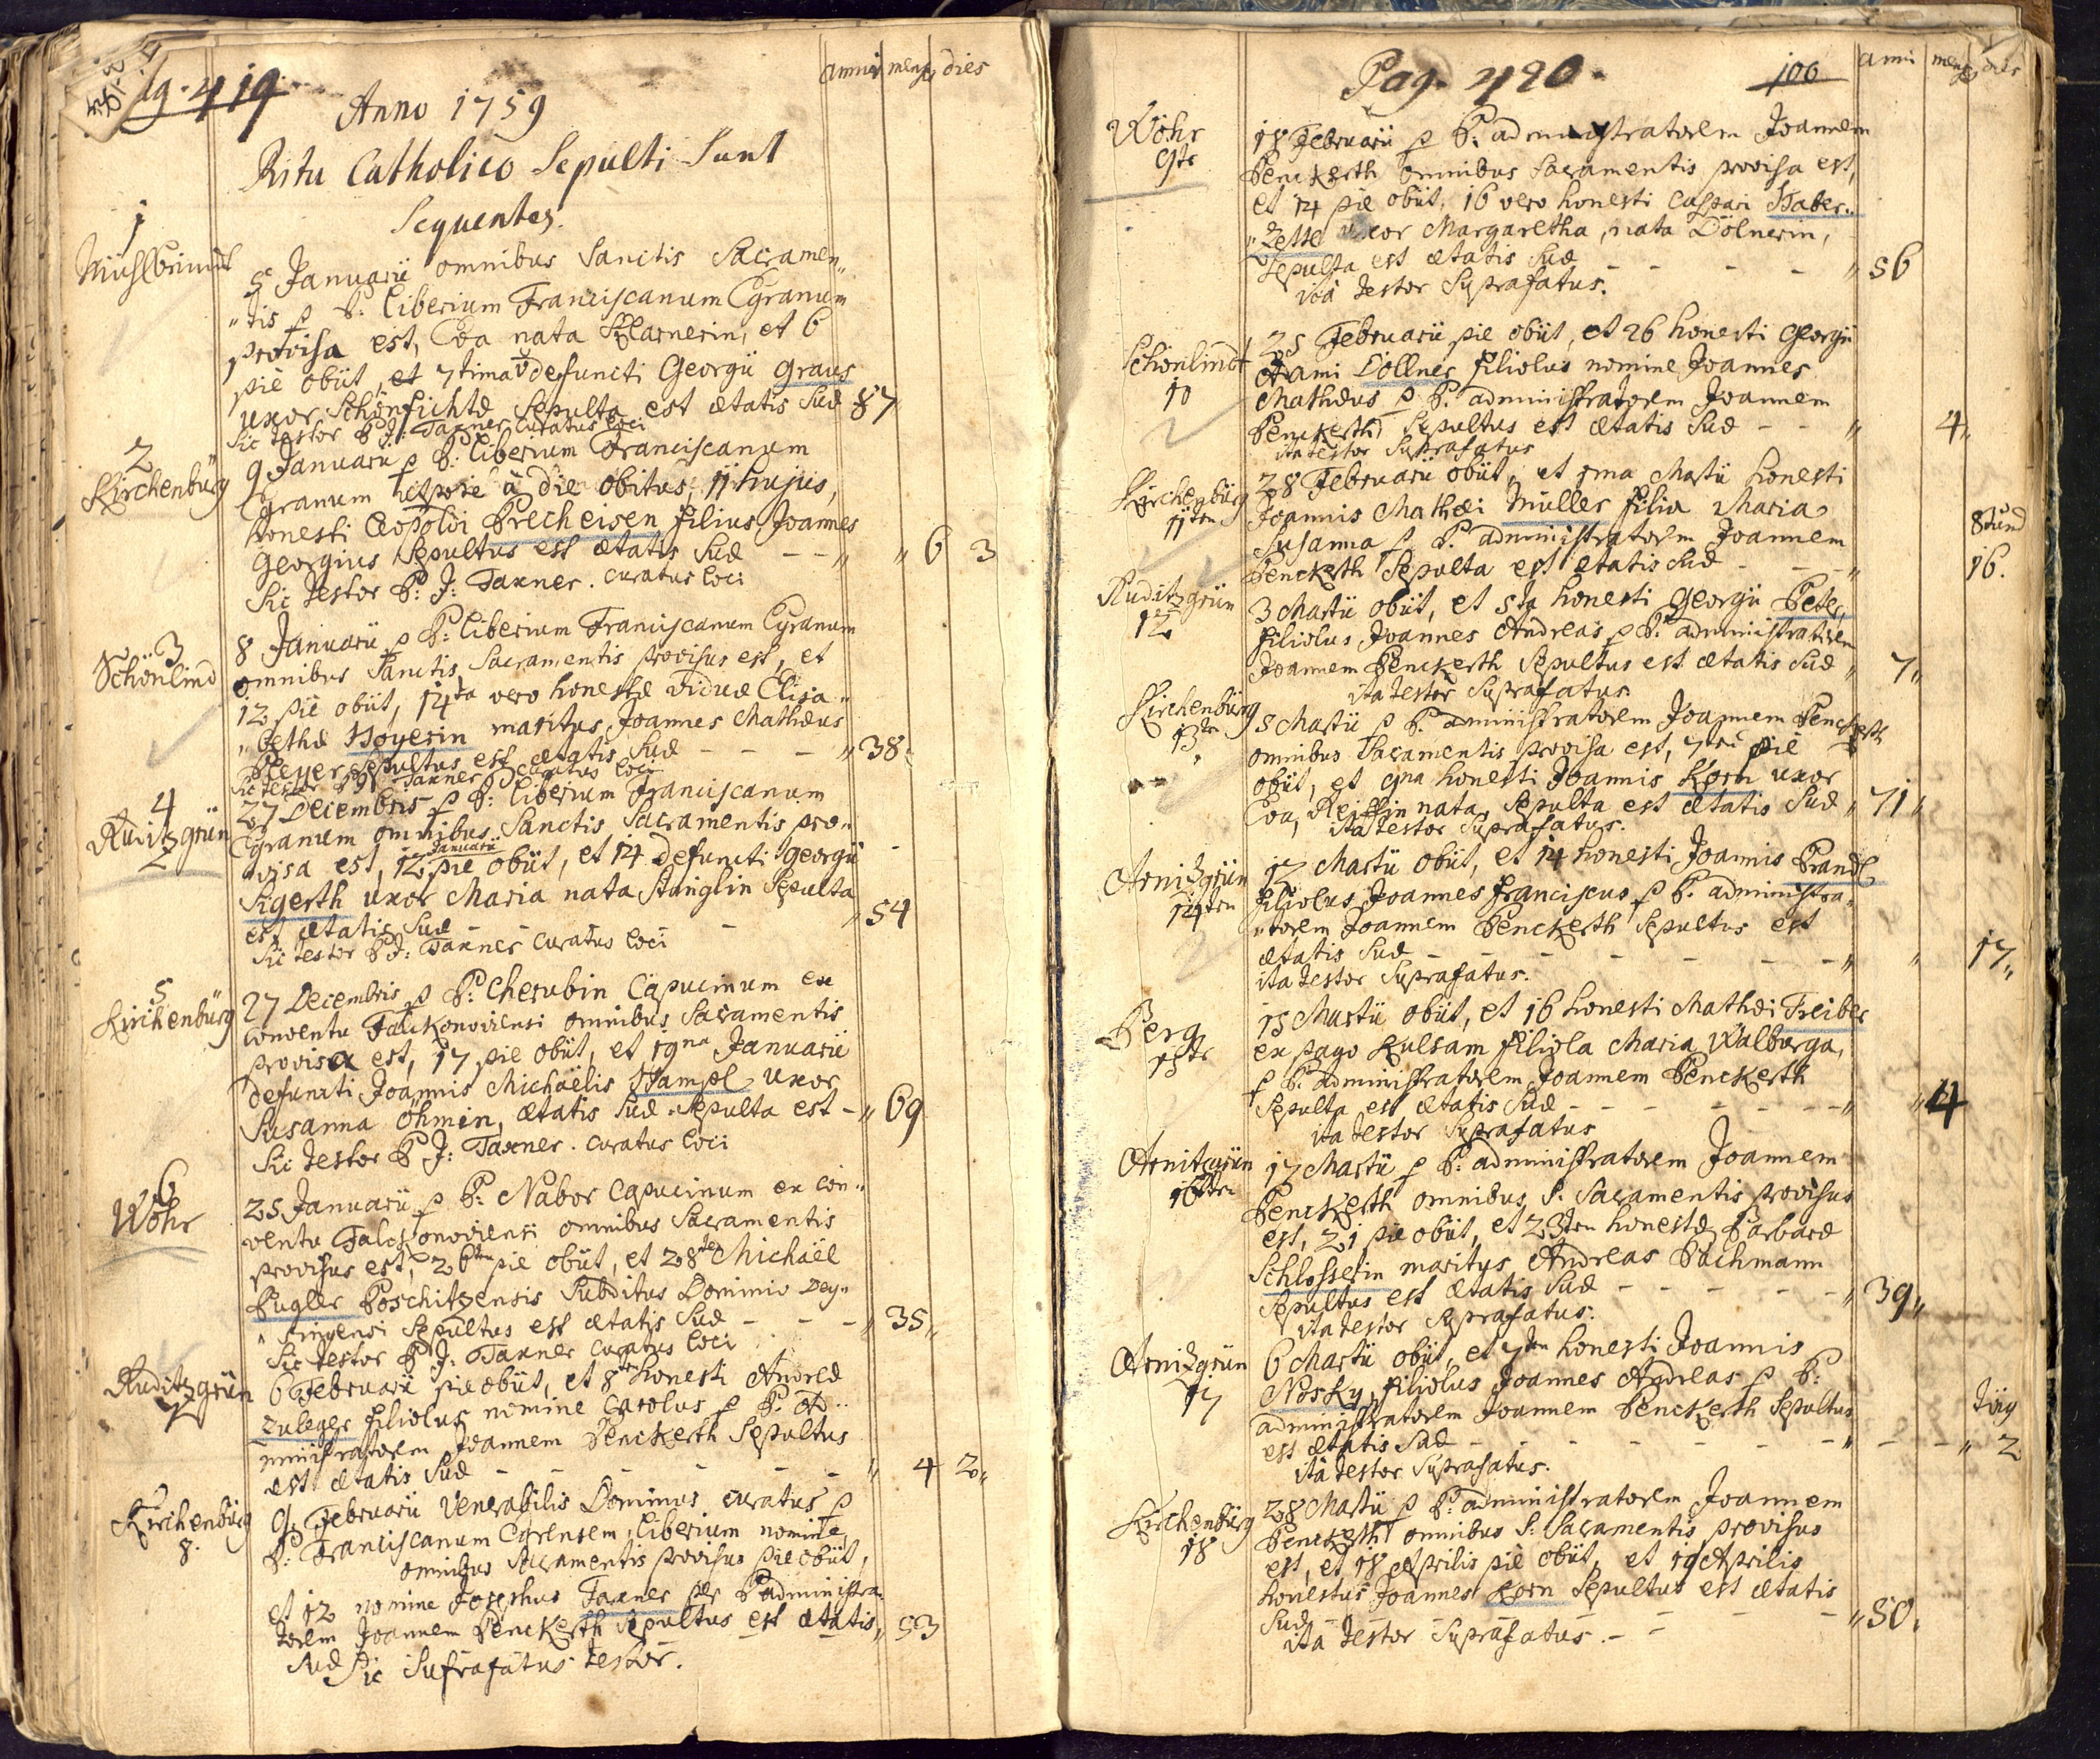 419
annis mens dies
Anno 1759
Ritu Catholico Sepulti Sunt
Sequentes.
1
Mühlbrindt
5 Januarii omnibus Sanctis Sacramen„
„tis p P: Liberium Franciscanum Egranum
provisa est, Eva nata Klarnerin, et 6
piè obiit, et 7tima defuncti Georgii Graus
uxor Schönfichtæ Sepulta est ætatis Suæ 87
Sic testor P J: Taxner Curatus loci
2
Kirchenbürg
9 Januarii p P: Liberium Franciscanum
Egranum à die obitus, 11 hujus,
honesti Leopoldi Precheisen filius Joannes
Georgius Sepultus est ætatis Suæ - - „ „ 6 3
Sic testor P: J: Taxner. curatus loci
3
Schönlind
8 Januarii p P: Liberium Franciscanum Egranum
omnibus Sanctis Sacramentis provisus est, et
12 piè obiit, 14ta vero honestæ viduæ Elisa„
„bethæ Hoyerin maritus Joannes Mathæus
Sepultus est ætatis Suæ - - - „ 38
Sic testor P J: Taxner Curatus loci
4
Ruditzgrün
27 Decembris p P: Liberium Franciscanum
Egranum omnibus Sanctis Sacramentis pro„
„visa est, 12 Januarii piè obiit, et 14 defuncti Georgii
Sigerth uxor Maria nata Stinglin Sepulta
est ætatis Suæ - - - „ 54
Sic testor P J: Taxner Curatus loci
5
Kirchenbürg
27 Decembris p P: Cherubin Capucinum ex
conventu Falckonoviensi omnibus Sacramentis
provisa est, 17 pie obiit, et 19na Januarii
defuncti Joannis Michaëlis Hampl uxor
Susanna Öhmin, ætatis Suæ Sepulta est - „ 69
Sic testor P J: Taxner. curatus loci
6
Wöhr
25 Januarii p P: Nabor Capucinum ex con„
ventu Falckonoviensi omnibus Sacramentis
provisus est, 26ten pie obiit, et 28te Michaël
Pugler Poschitzensis Subditus Dominio
Sepultus est ætatis Suæ - - - „ 35„
Sic testor P J: Taxner Curatus loci
Ruditzgrün
7
6 Februarii pie obiit, et 8ten honesti Andreæ
Zuleger filiolus nomine Carolus p P. Ad„
ministratorem Joannem Penckerth Sepultus
est ætatis Suæ - - - - - „ 4 2„
Kirchenbürg
8.
9 Februarii Venerabilis Dominus curatus p
P: Franciscanum Egrensem Liberium nomine
omnibus Sacramentis provisus pie obiit,
et 12 nomine Josephus Taxner per P administra„
torem Joannem Penckerth Sepultus est ætatis „ 53
Suæ Sic Suprafatus testor.
Pag. 420.
100
anni mens dies
Wöhr
9te
18 Februarii p P: administratorem Joannem
Penckerth omnibus Sacramentis provisa est,
et 14 piè obiit, 16 vero honesti Caspari Haber„
„Zettl uxor Margaretha, nata Dölnerin,
Sepulta est ætatis Suæ - - - - „ 56
ità testor Suprafatus.
Schönlindt
10
25 Februarii pie obiit, et 26 honesti Georgii
Adami Döllner filiolus nomine Joannes
Mathæus p P. administratorem Joannem
Penckerth Sepultus est ætatis Suæ - - „ 4„
ita testor Suprafatus
Kirchenbürg
11ten
28 Februarii obiit, et 1ma Martii honesti
Joannis Mathæi Müller filia Maria
Susanna p P. administratorem Joannem
Penckerth Sepulta est ætatis Suæ - - - „
Stund
16.
Ruditzgrün
12
3 Martii obiit, et 5ta honesti Georgii Peter,
filiolus Joannes Andreas p P. administratorem
Joannem Penckerth Sepultus est ætatis Suæ „ 7„
ita testor Suprafatus.
Kirchenbürg
13te
5 Martii p P. administratorem Joannem Penckerth
omnibus Sacramentis provisa est, piè
obiit, et 9na honesti Joannis Korn uxor
Eva, nata, Sepulta est ætatis Suæ „ 71„
ita testor Suprafatus.
Arnitzgrün
14ten
12 Martii obiit, et 14 honesti Joannis Prandl
filiolus Joannes Franciscus p P. administra„
„torem Joannem Penckerth Sepultus est
ætatis Suæ - - - - - - - „ „ 17„
ita testor Suprafatus.
Berg
15te
15 Martii obiit, et 16 honesti Mathæi Treiber
ex pago Kulsam filiola Maria Walburga,
p P. administratorem Joannem Penckerth
Sepulta est ætatis Suæ - - - - - - „ „ 4
ita testor Suprafatus
Arnitzgrün
16ten
17 Martii p P: administratorem Joannem
Penckerth omnibus S. Sacramentis provisus
est, 21 pie obiit, et 23ten honestæ Barbaræ
Schlosserin maritus Andreas Bachmann
Sepultus est ætatis Suæ - - - - - „ 39„
ita testor Suprafatus.
Arnitzgrün
17
6 Martii obiit, et 7ten honesti Joannis
Nosky, filiolus Joannes Andreas p P:
administratorem Joannem Penckerth Sepultus
est ætatis Suæ - - - - - - - „ - - „ 2
ità testor Suprafatus.
Kirchenbürg
18
28 Martii p P. administratorem Joannem
Penckerth omnibus S: Sacramentis provisus
est, et 18 Aprilis piè obiit, et 19 Aprilis
honestus Joannes Korn Sepultus est ætatis
Suæ - - - - - „ 50.
ità testor Suprafatus. - -